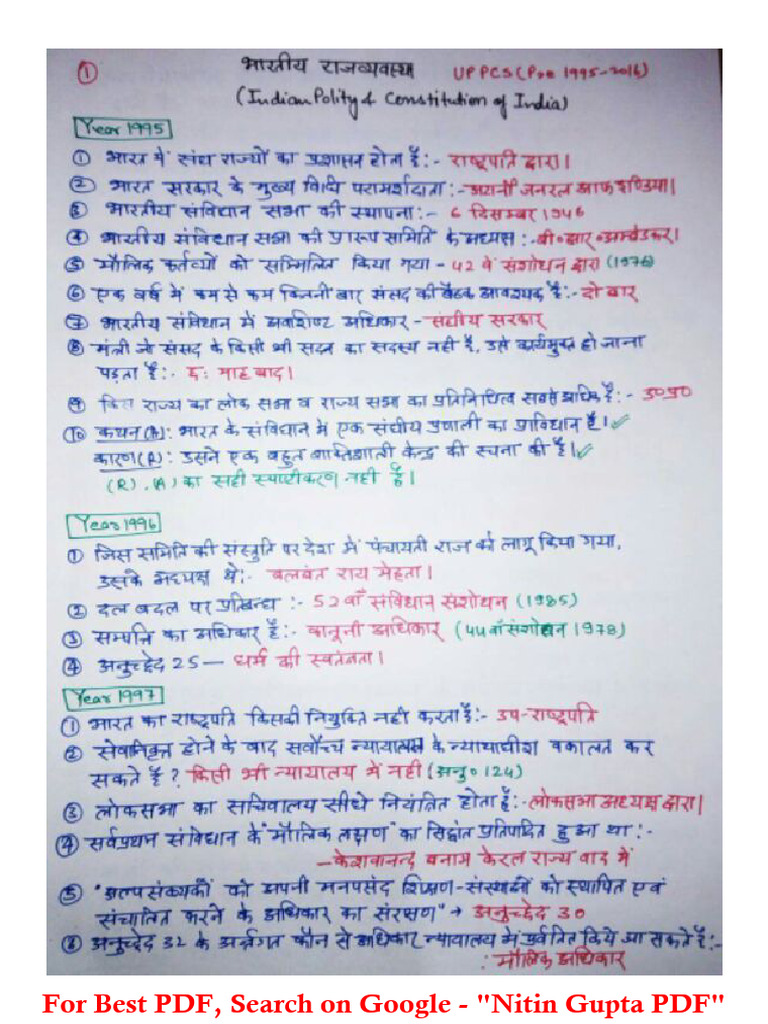 ① भारतीय राजव्यवस्था UPPCS (Pre 1995-2016)
(Indian Polity & Constitution of India)
Year 1995
① भारत में संघ राज्यों का प्रशासन होता है:- राष्ट्रपति द्वारा।
② भारत सरकार के मुख्य विधि परामर्शदाता:- अटार्नी जनरल आफ इण्डिया।
③ भारतीय संविधान सभा की स्थापना:- 6 दिसम्बर 1946
④ भारतीय संविधान सभा की प्रारूप समिति के अध्यक्ष:- बी॰ आर॰ अम्बेडकर।
⑤ मौलिक कर्तव्यों को सम्मिलित किया गया - 42 वें संशोधन द्वारा (1976)
⑥ एक वर्ष में कम से कम कितनी बार संसद की बैठक आवश्यक है:- दो बार
⑦ भारतीय संविधान में अवशिष्ट अधिकार - संघीय सरकार
⑧ मंत्री जो संसद के किसी भी सदन का सदस्य नहीं है, उसे कार्यमुक्त हो जाना
पड़ता है:- छः माह बाद।
⑨ किस राज्य का लोक सभा व राज्य सभा का प्रतिनिधित्व सबसे अधिक है:- उ०प्र०
⑩ कथन (A): भारत के संविधान में एक संघीय प्रणाली का प्राविधान है। ✓
कारण (R): उसने एक बहुत शक्तिशाली केन्द्र की रचना की है। ✓
(R), (A) का सही स्पष्टीकरण नहीं है।
Year 1996
① जिस समिति की संस्तुति पर देश में पंचायती राज को लागू किया गया,
उसके अध्यक्ष थे:- बलवंत राय मेहता।
② दल बदल पर प्रतिबन्ध :- 52वाँ संविधान संशोधन (1985)
③ सम्पत्ति का अधिकार है:- कानूनी अधिकार (44वाँ संशोधन 1978)
④ अनुच्छेद 25 — धर्म की स्वतंत्रता।
Year 1997
① भारत का राष्ट्रपति किसकी नियुक्ति नहीं करता है:- उप-राष्ट्रपति
② सेवानिवृत्त होने के बाद सर्वोच्च न्यायालय के न्यायाधीश वकालत कर
सकते हैं? किसी भी न्यायालय में नहीं (अनु० 124)
③ लोकसभा का सचिवालय सीधे नियंत्रित होता है:- लोकसभा अध्यक्ष द्वारा।
④ सर्वप्रथम संविधान के "मौलिक लक्षण" का सिद्धांत प्रतिपादित हुआ था:-
- केशवानन्द बनाम केरल राज्य वाद में
⑤ "अल्पसंख्यकों को अपनी मनपसंद शिक्षण-संस्थाओं को स्थापित एवं
संचालित करने के अधिकार का संरक्षण" → अनुच्छेद 30
⑥ अनुच्छेद 32 के अर्न्तगत कौन से अधिकार न्यायालय में प्रवर्तित किये जा सकते हैं:-
: मौलिक अधिकार
For Best PDF, Search on Google - "Nitin Gupta PDF"